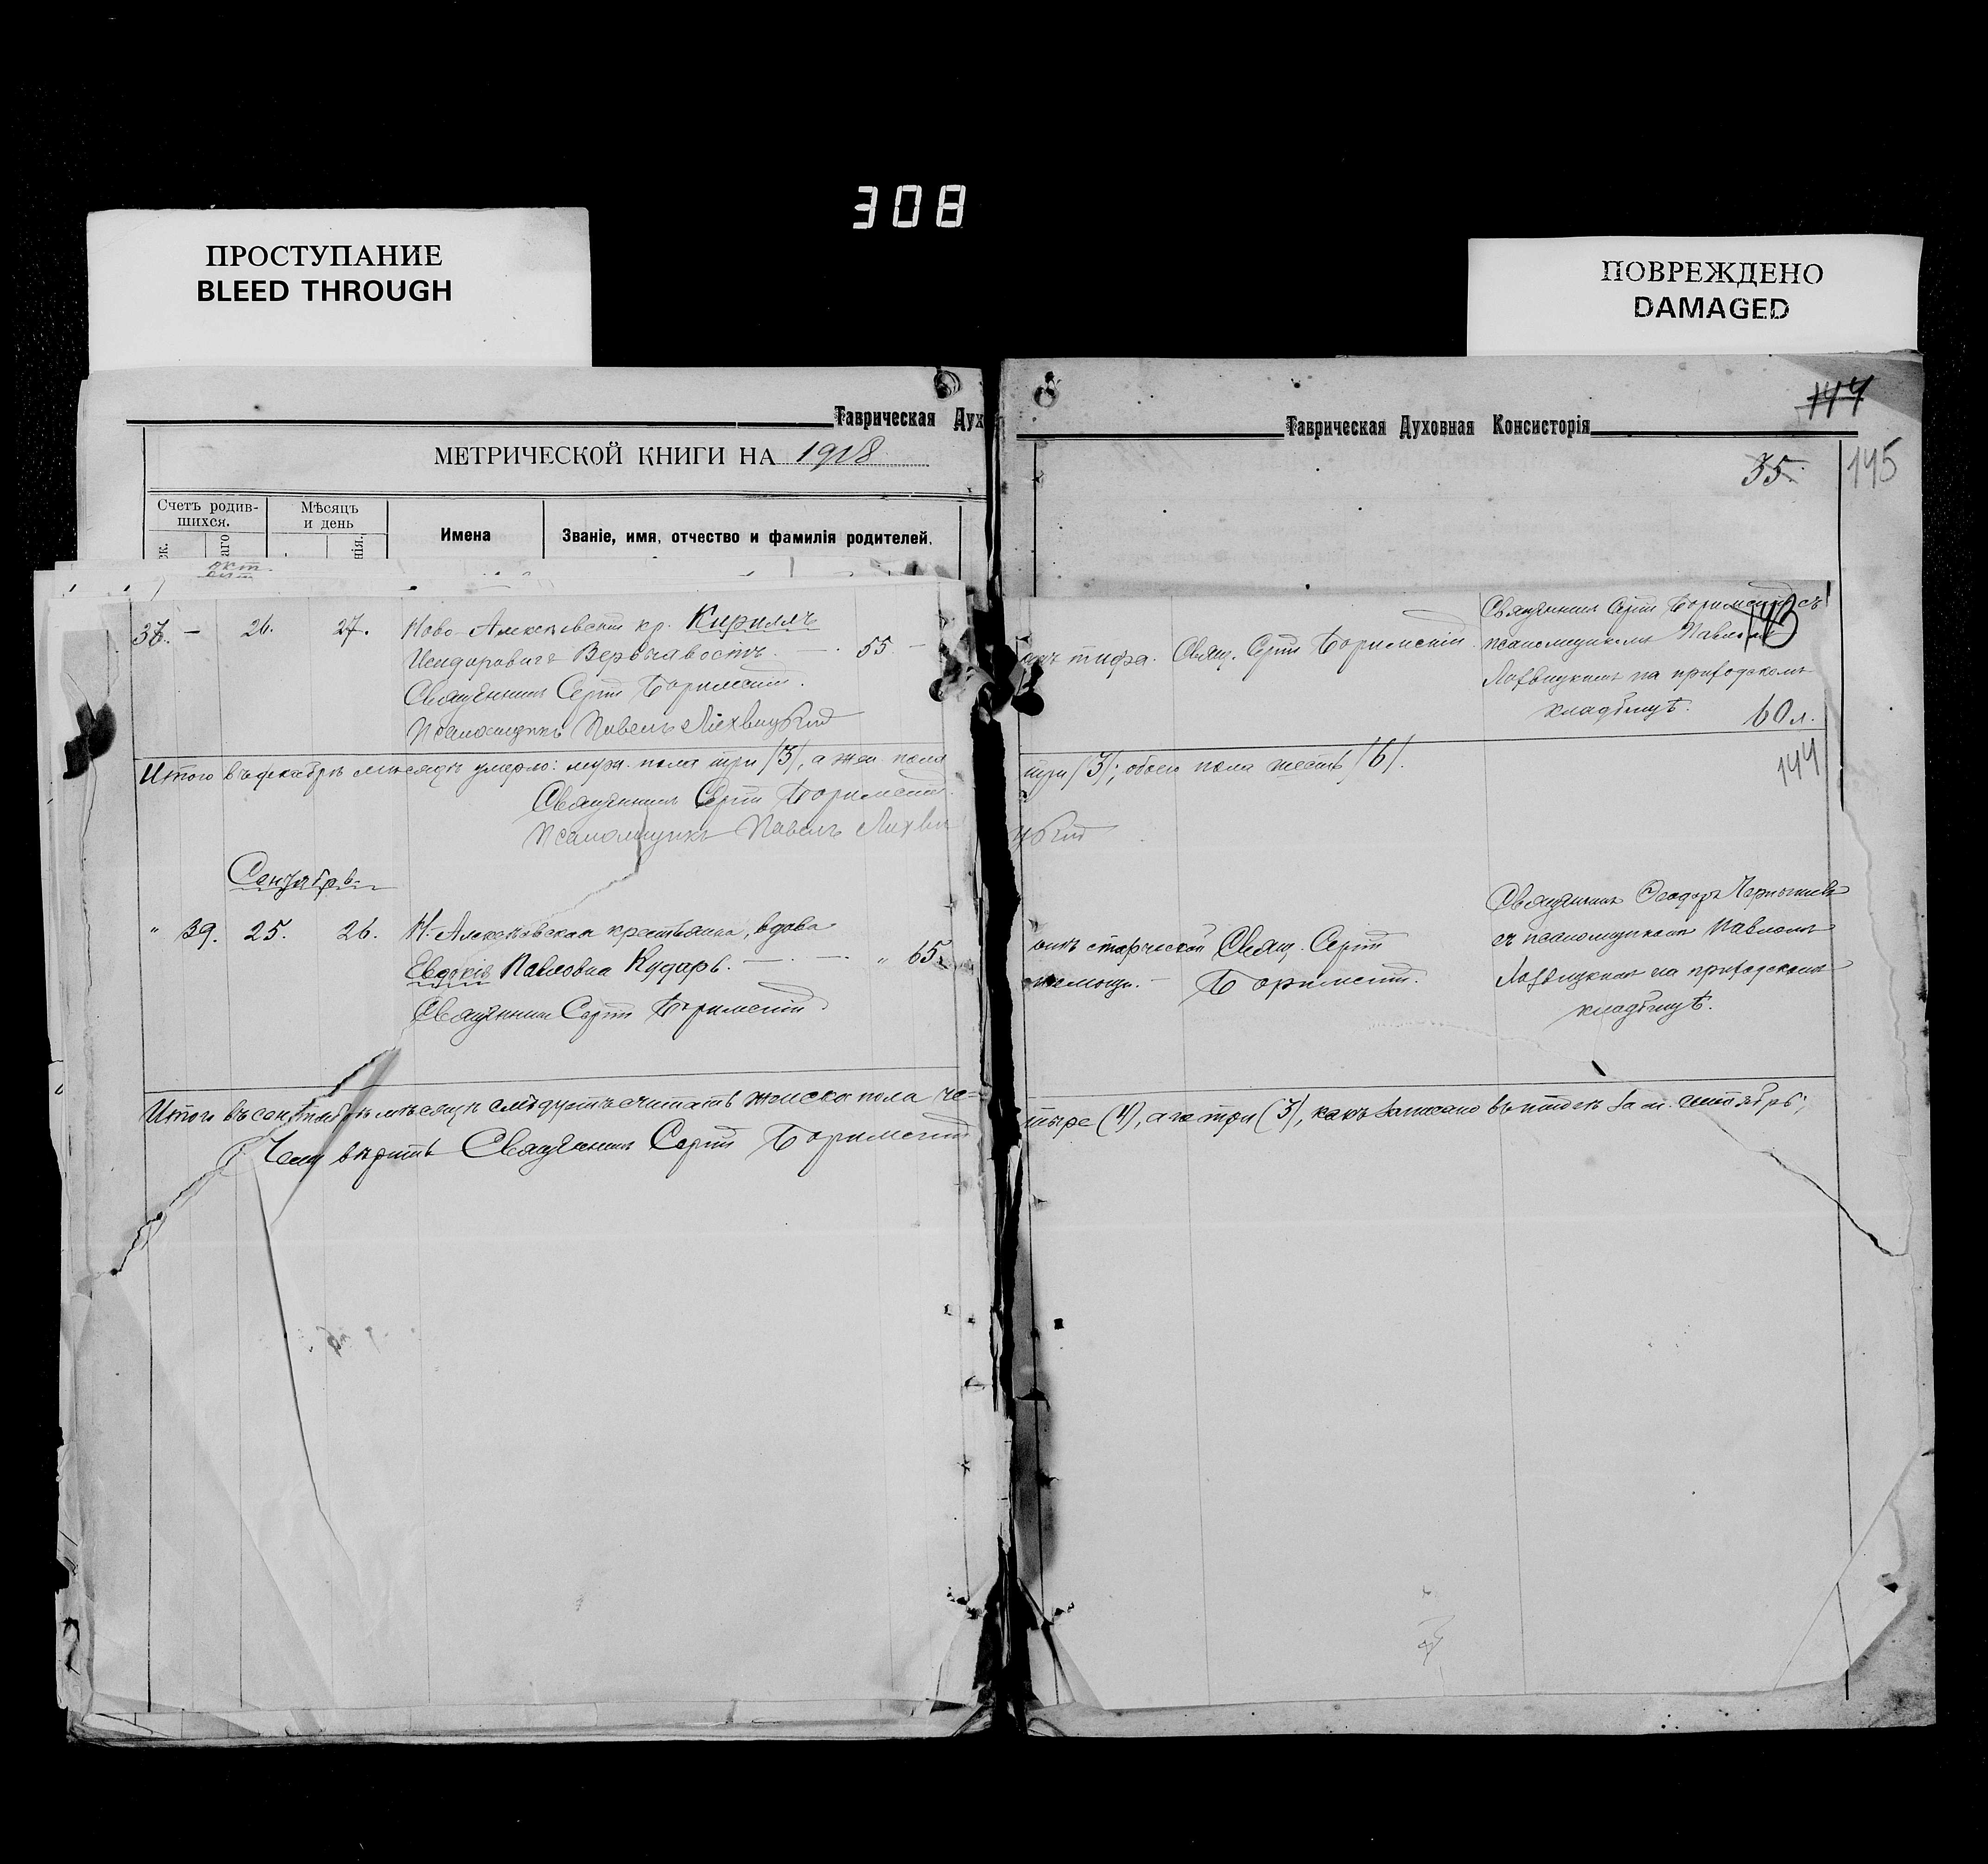 308
ПРОСТУПАНИЕ
BLEED THROUGH
ПОВРЕЖДЕНО
DAMAGED
Таврическая Дух
МЕТРИЧЕСКОЙ КНИГИ НА 1918
Счетъ родив-
шихся.
Мѣсяцъ
и день
Имена
Званіе, имя, отчество и фамилія родителей,
38. — 26. 27. Ново-Алексѣевскій кр. Кириллъ
55 —
Священникъ Сергій Боримскій.
Псаломщикъ Павелъ Лихвицкій
Итого въ декабрѣ мѣсяцѣ умерло: муж. пола три /3/, а жен. пола
Священникъ Сергій Боримскій.
Псаломщикъ Павелъ Лихви
Сентябрь
" 39. 25. 26. Н. Алексѣевская крестьянка, вдова
Евдокія Павловна Кударь. — " 65.
Священникъ Сергій Боримскій
Итого въ сентябрѣ мѣсяцѣ слѣдуетъ считать женска пола че-
Чему вѣрить Священникъ Сергій Боримскій
144
Таврическая Духовная Консисторія
35.
145
Священникъ Сергій Боримскій съ
143
отъ тифа. Свящ. Сергій Боримскій. псаломщикомъ Павломъ
Лихвицкимъ на приходскомъ
кладбищѣ.
60 л.
три /3/; обоего пола шесть /6/.
144
цкій
Священникъ Ѳеодоръ
отъ старческой Свящ. Сергій съ псаломщикомъ Павломъ
немощи. — Боримскій. Лихвицкимъ на приходскомъ
кладбищѣ.
тыре (4), а не три (3), какъ записано въ итогѣ за м. сентябрь;